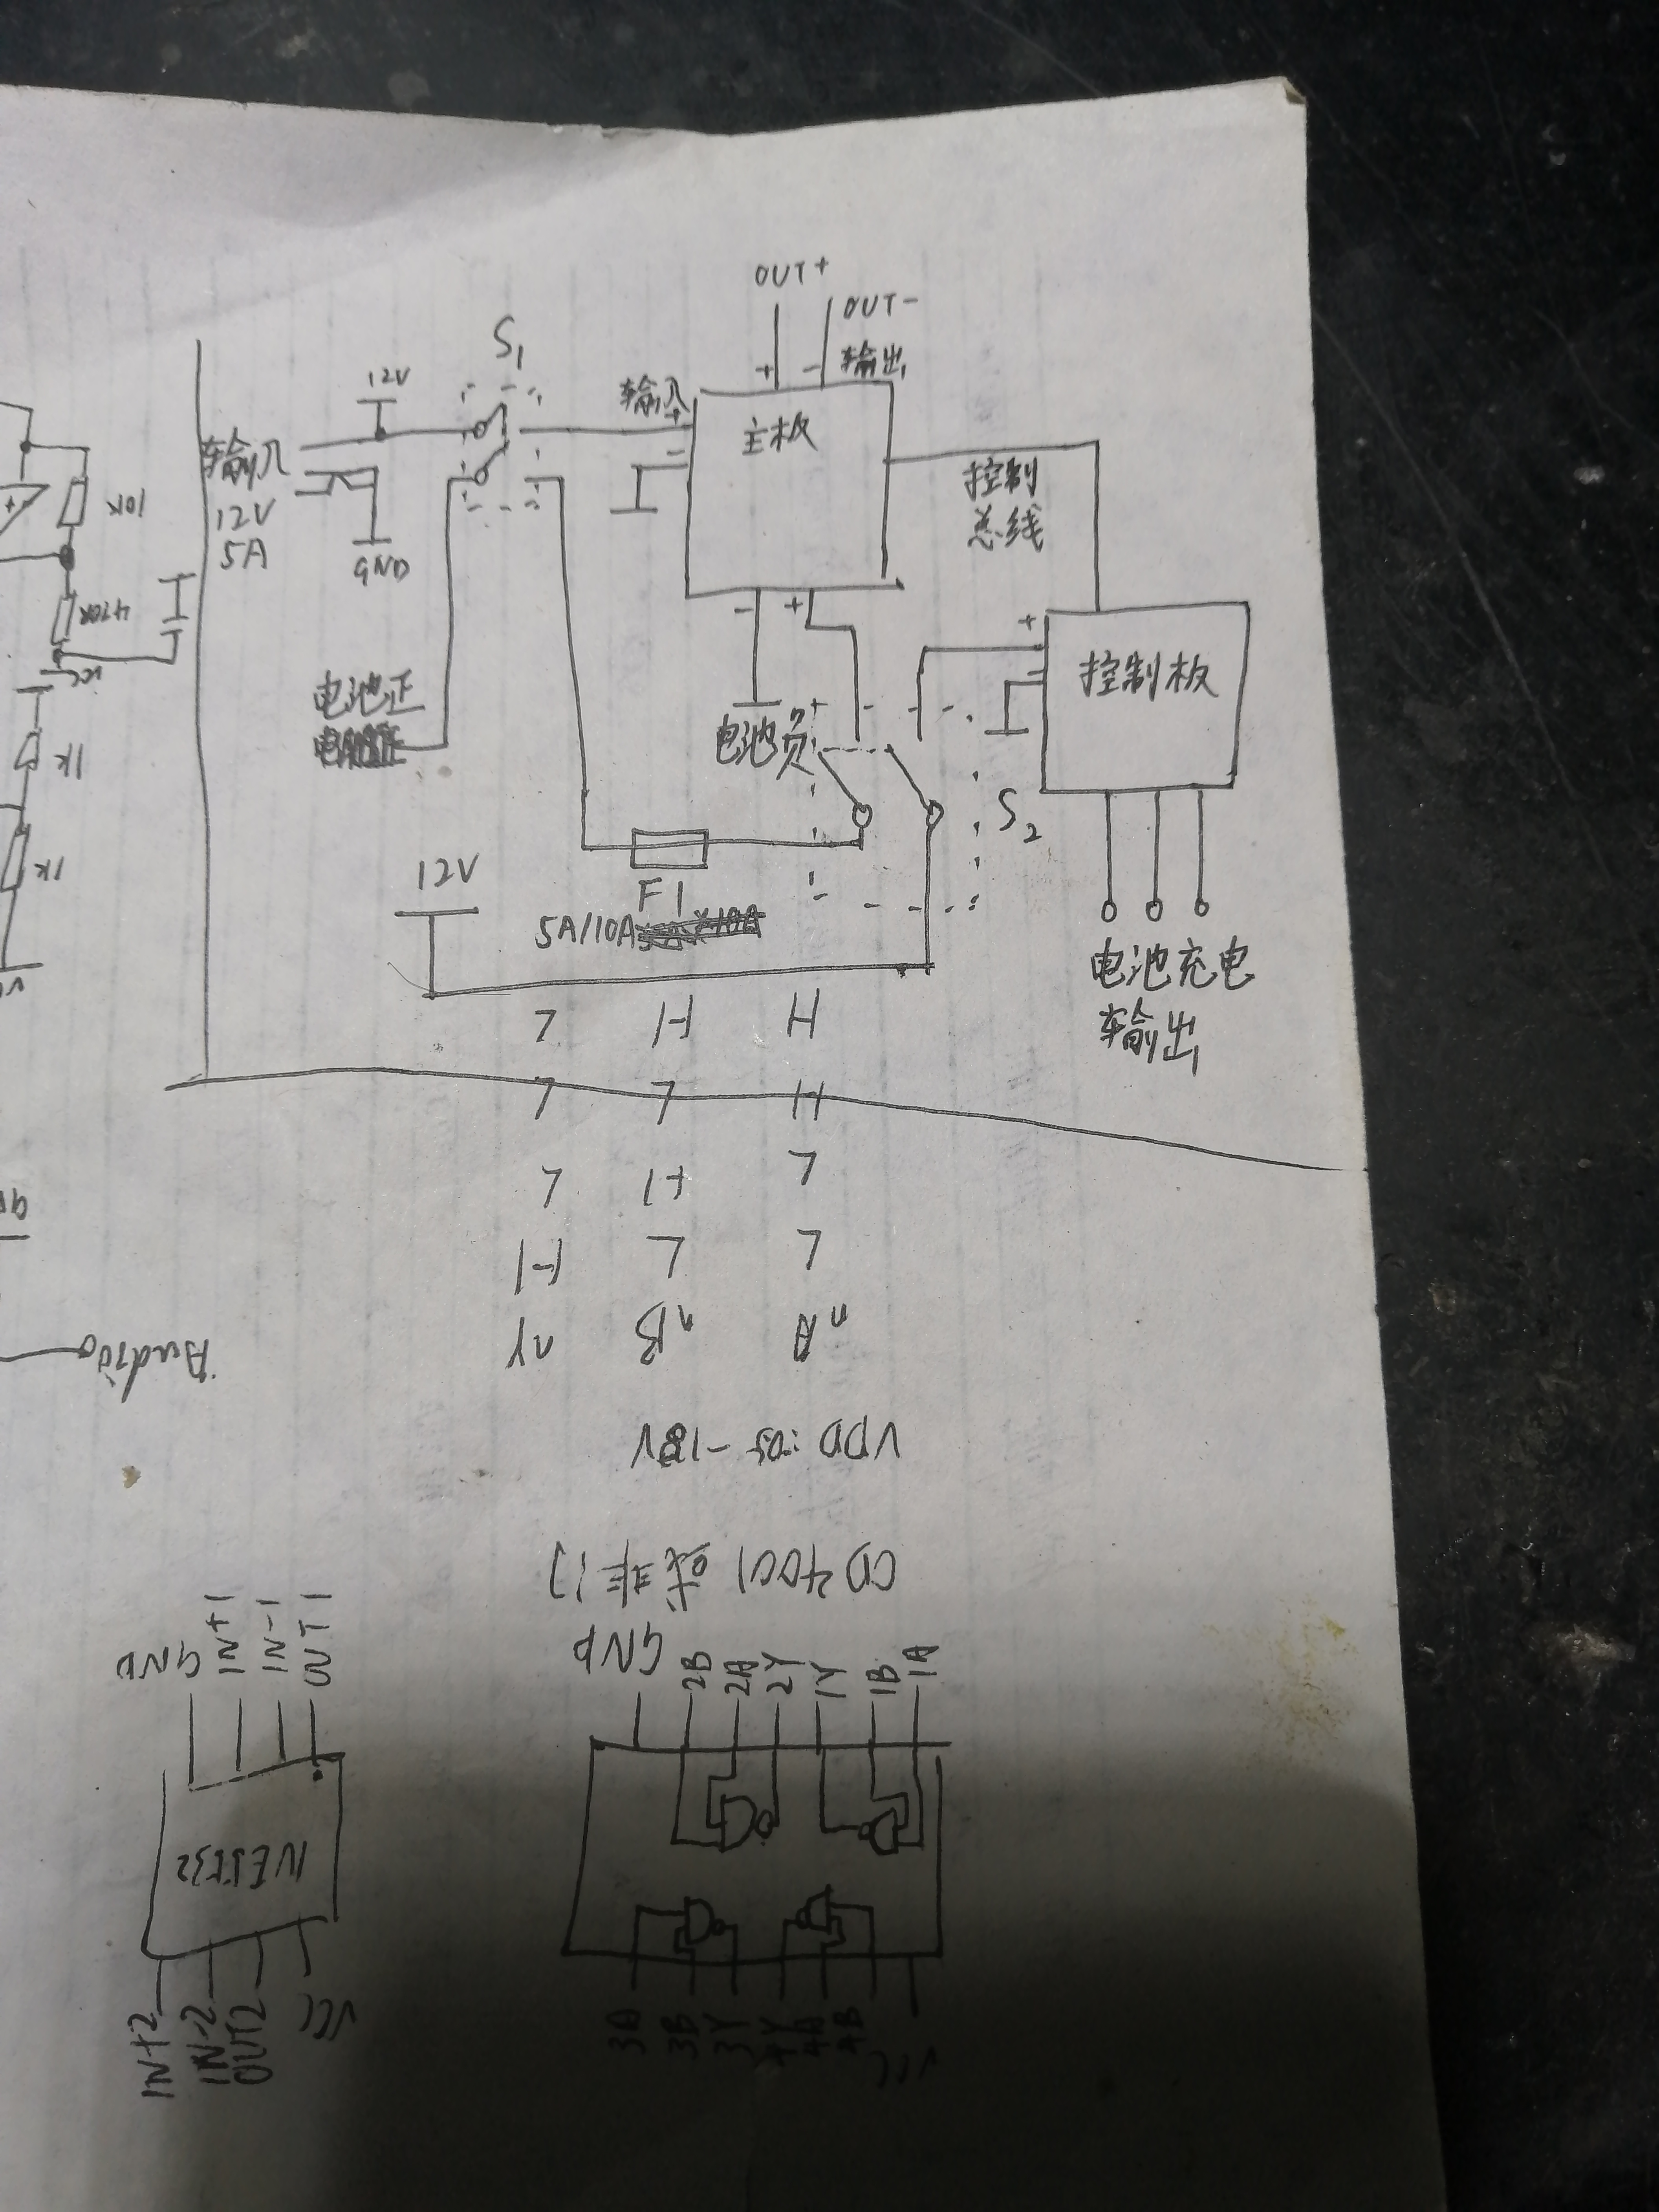 OUT+
OUT-
输出
+ -
S1
12V
输入
+
-
主板
输入
12V
5A
GND
控制
总线
10K
470K
VCC
1K
1K
- +
+
-
控制板
电池正
电池负
S2
12V
F1
5A/10A
电池充电
输出
CD4001 或非门
nA nB nY
L L H
L H L
H L L
H H L
Audio
GND
IN+1
IN-1
OUT1
NE5532
IN+2
IN-2
OUT2
VCC
GND
2B
2A
2Y
1Y
1B
1A
3A
3B
3Y
4Y
4A
4B
VCC